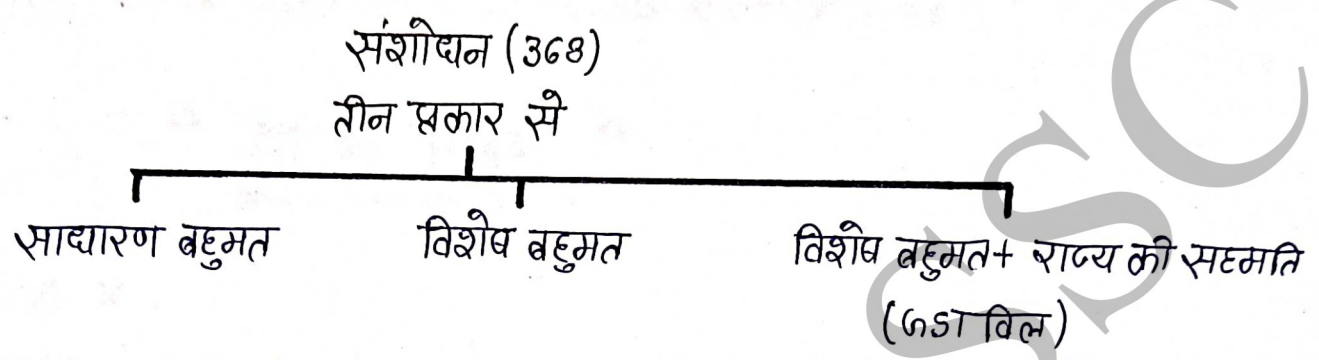 संशोधन (368)
तीन प्रकार से
साधारण बहुमत
विशेष बहुमत
विशेष बहुमत + राज्य की सहमति
(GST विल)
SSC